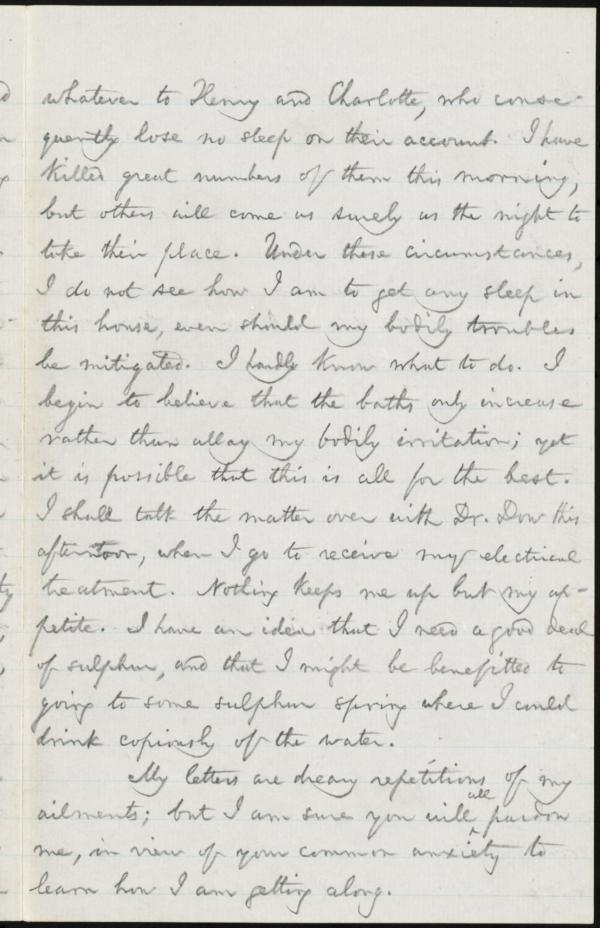 whatever to Henry and Charlotte, who conse-
quently lose no sleep on their account. I have
killed great numbers of them this morning,
but others will come as surely as the night to
take their place. Under these circumstances,
I do not see how I am to get any sleep in
this house, even should my bodily troubles
be mitigated. I hardly know what to do. I
begin to believe that the baths only increase
rather than allay my bodily irritation; yet
it is possible that this is all for the best.
I shall talk the matter over with Dr. Dow this
afternoon, when I go to receive my electrical
treatment. Nothing keeps me up but my ap-
petite. I have an idea that I need a good deal
of sulphur, and that I might be benefitted to
going to some sulphur spring where I could
drink copiously of the water.
My letters are dreary repetitions of my
ailments; but I am sure you will all pardon
me, in view of your common anxiety to
learn how I am getting along.